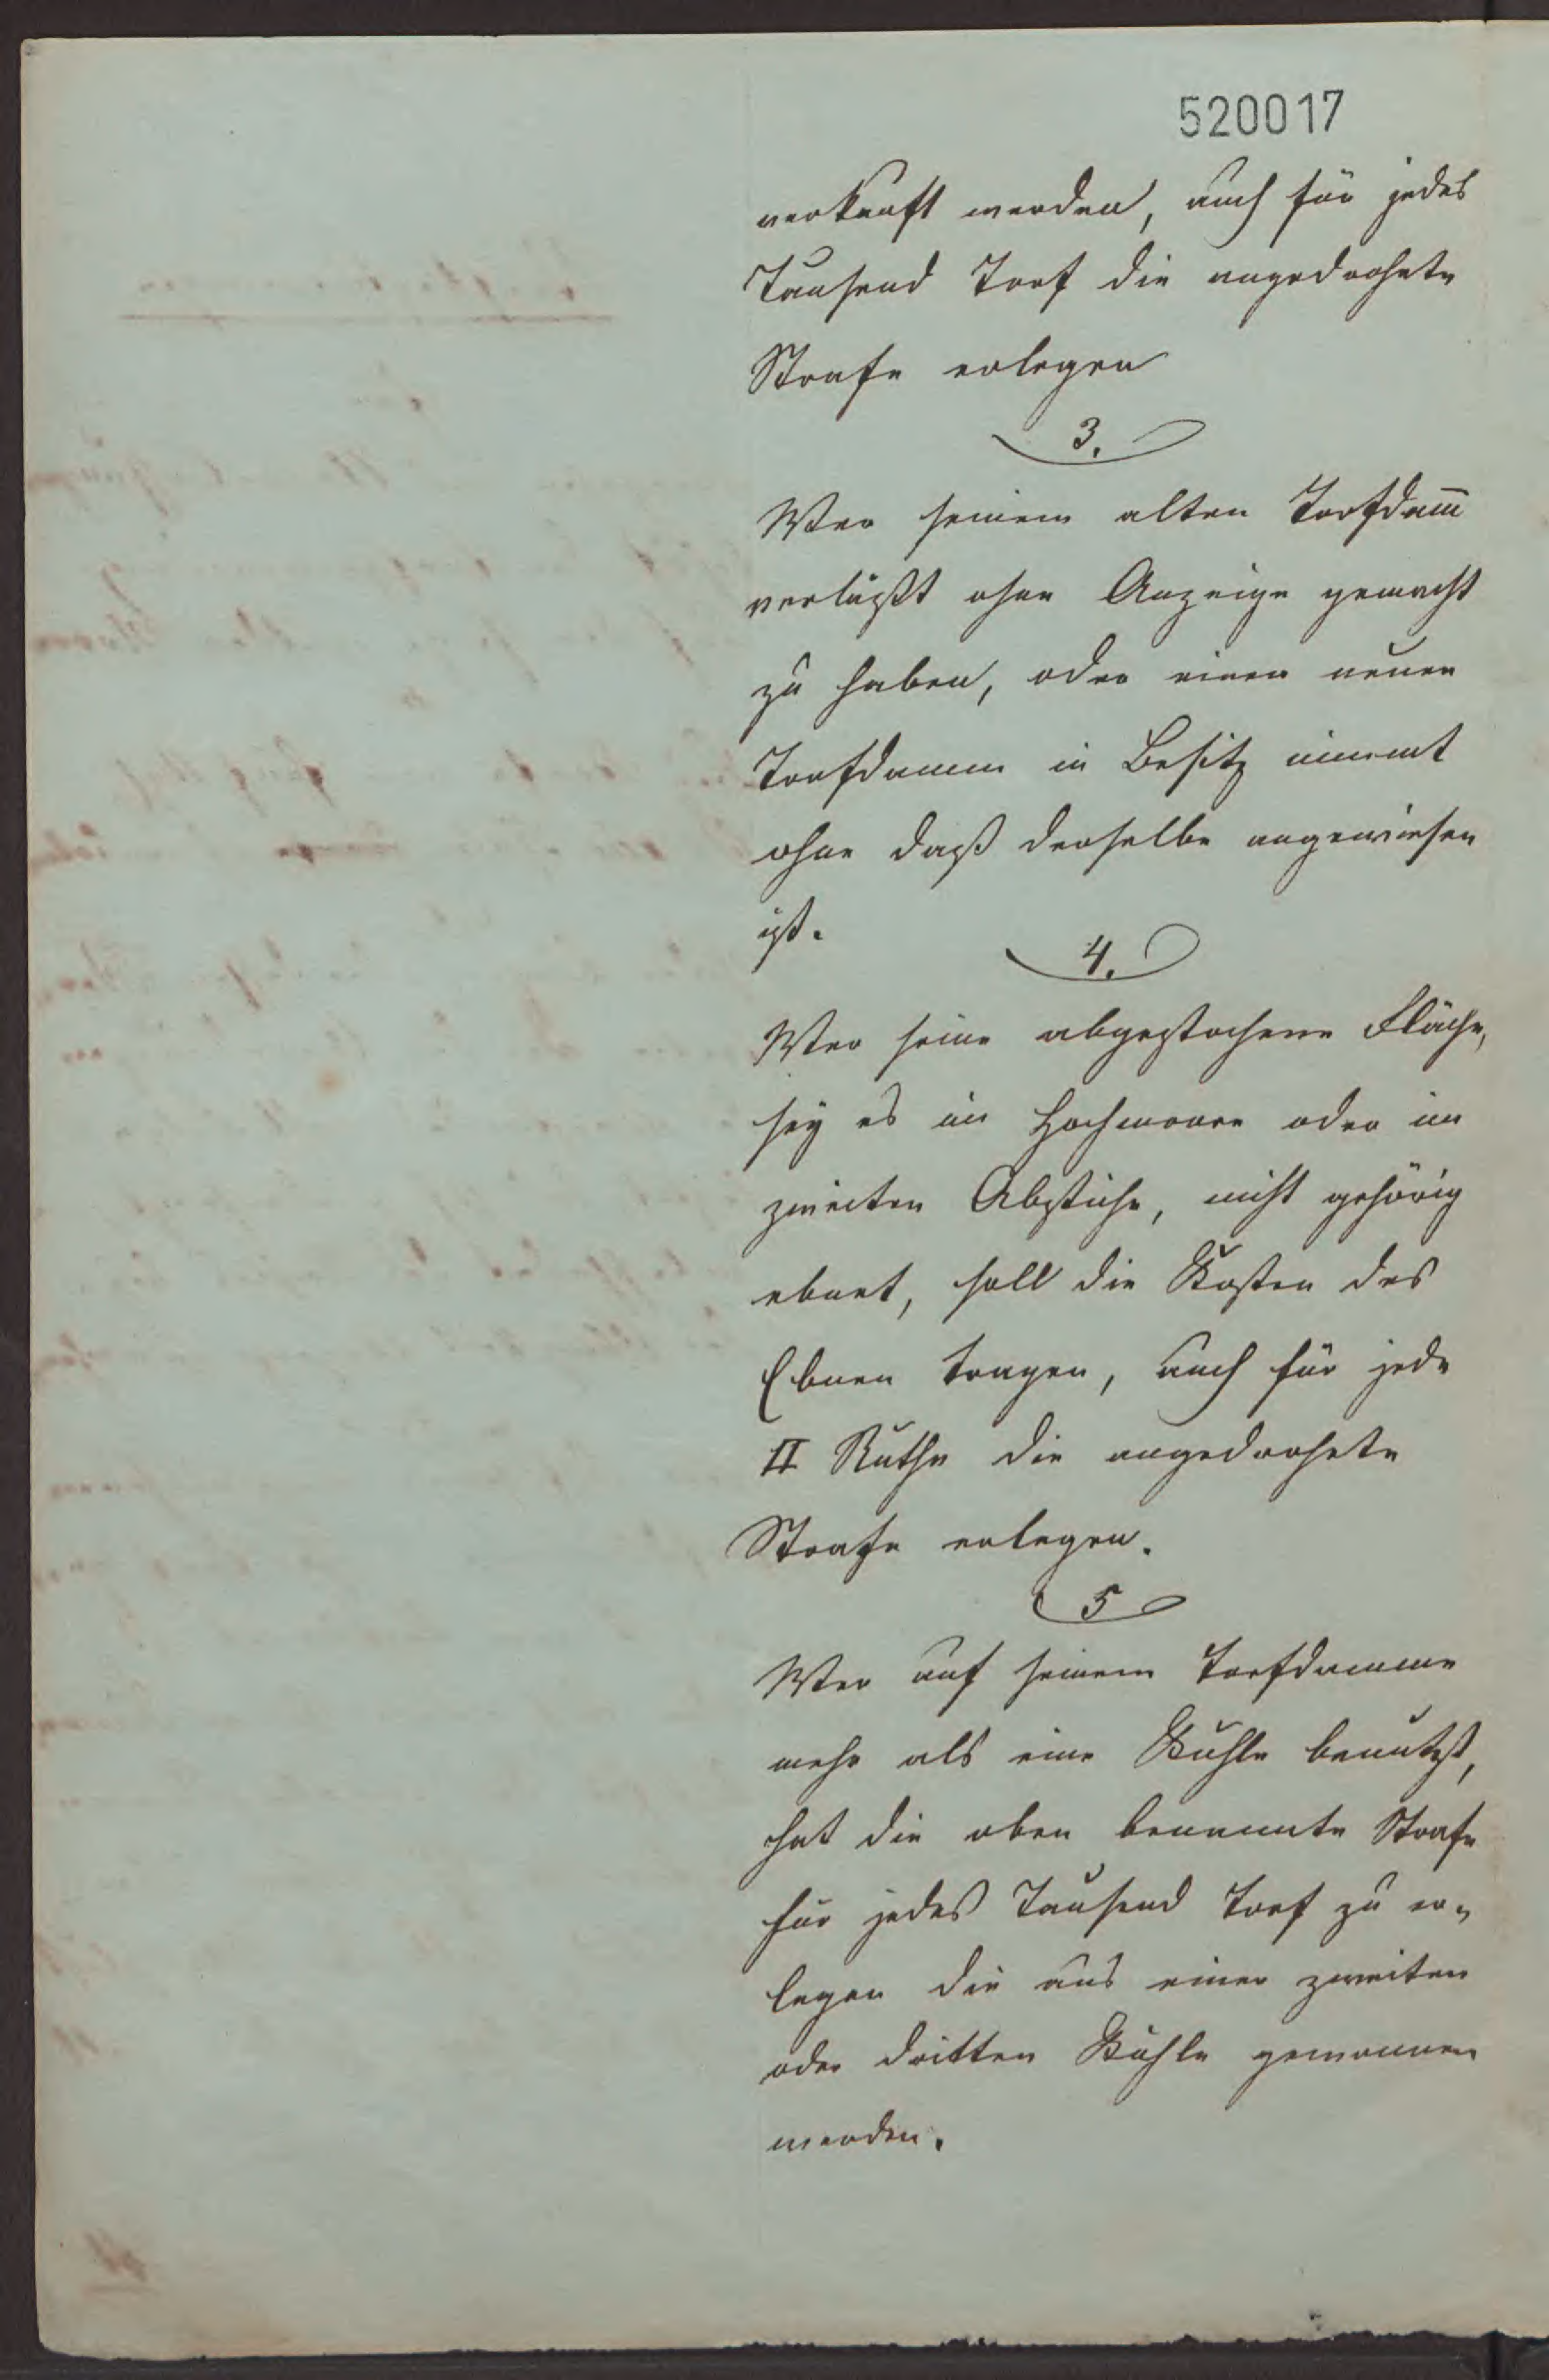 520017
verkauft werden, auch für jedes
Tausend Torf die angedrohete
Strafe erlegen
3.
Wer seinem alten Torfdam̅
verläßt ohne Anzeige gemacht
zu haben, oder einen neuen
Torfdamm in Besitz nimmt
ohne daß derselbe angewiesen
ist.
4.
Wer seine abgestochene Fläche,
sey es im Hochmoore oder im
zweiten Abstiche, nicht gehörig
ebnet, soll die Kosten des
Ebnen tragen, auch für jede
□ Ruthe die angedrohete
Strafe erlegen.
5
Wer auf seinem Torfdamme
mehr als eine Kuhle benutzt,
hat die oben benannte Strafe
für jedes Tausend Torf zu er-
legen die aus einer zweiten
oder dritten Kuhle gewonnen
werden.